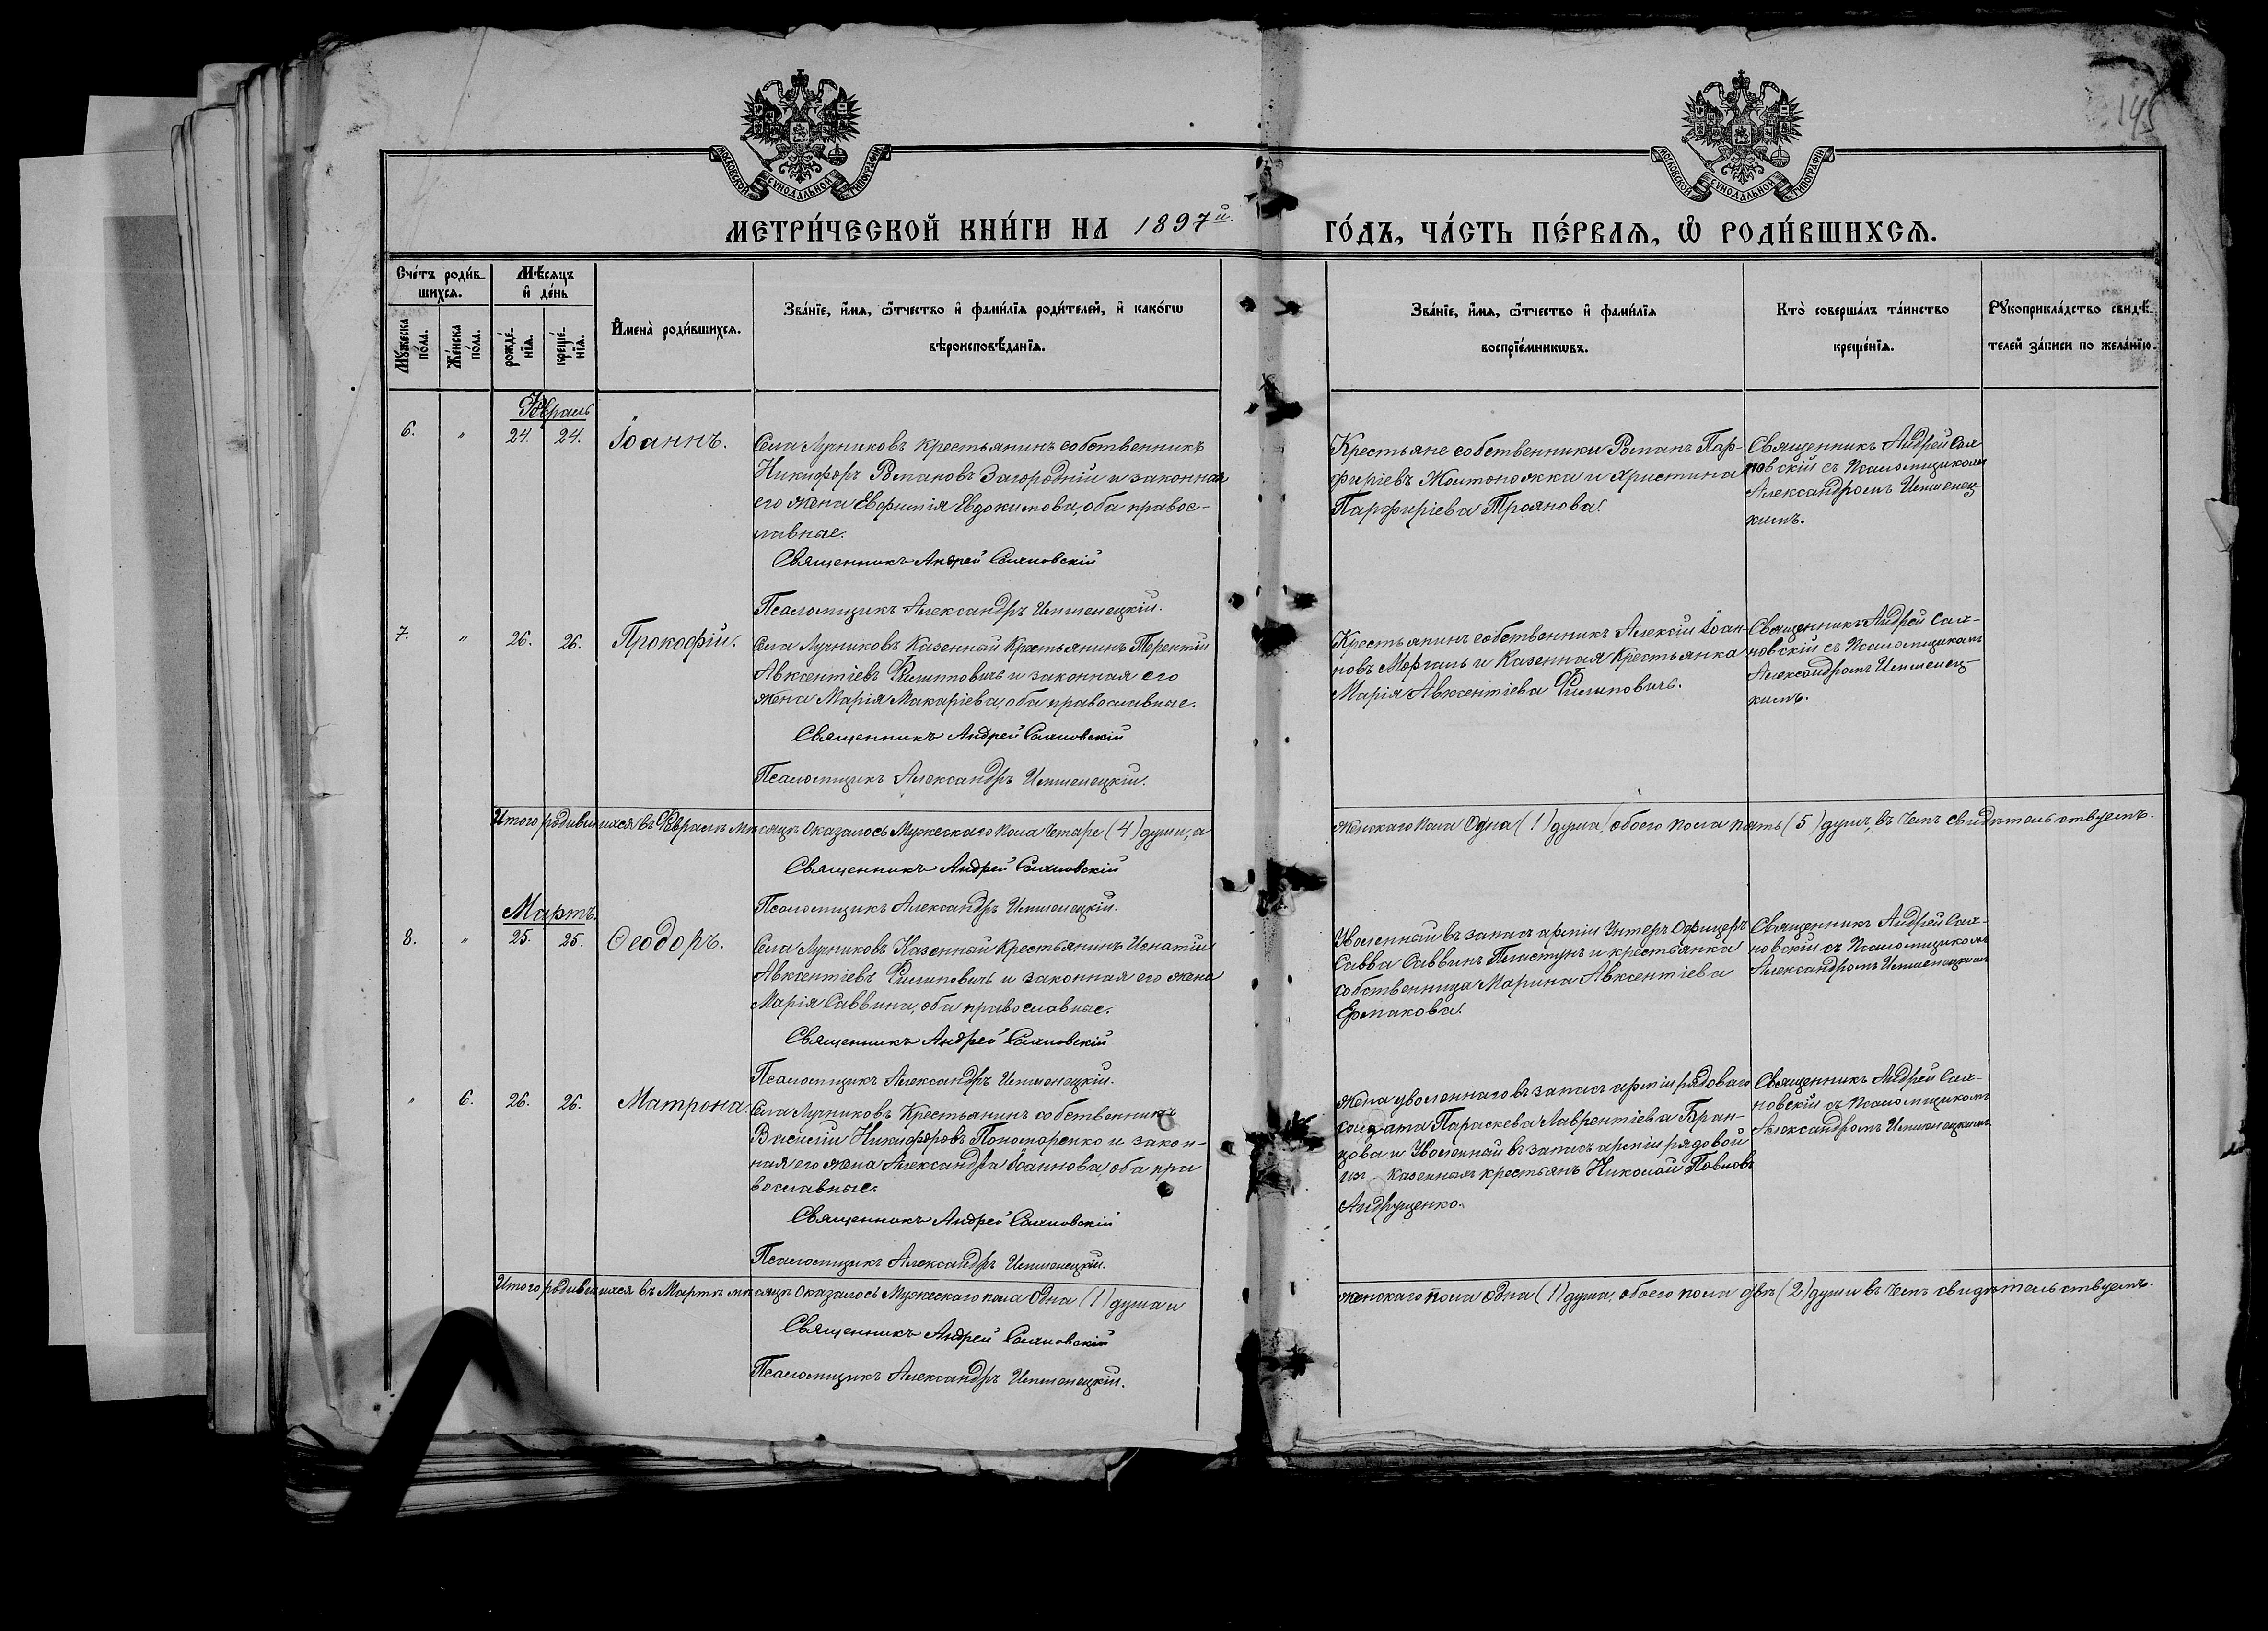 145
МОСКОВСКОЙ СУНОДАЛЬНОЙ ТИПОГРАФІИ
МОСКОВСКОЙ СУНОДАЛЬНОЙ ТИПОГРАФІИ
МЕТРИ́ЧЕСКОЙ КНИ́ГИ НА 1897й.
ГО́ДЪ, ЧА́СТЬ ПЕ́РВАѦ, Ѡ РОДИ́ВШИХСѦ.
Сче́тъ роди́в-
шихсѧ.
Мꙋ́жеска
по́ла.
Же́нска
по́ла.
Мѣ́сѧцъ
и҆ де́нь
рожде́-
нїѧ.
креще́-
нїѧ.
И҆мена̀ роди́вшихсѧ.
Зва́нїе, и҆́мѧ, ѻ҆́тчество и҆ фами́лїѧ роди́телей, и҆ како́гѡ
вѣроисповѣ́данїѧ.
Зва́нїе, и҆́мѧ, ѻ҆́тчество и҆ фами́лїѧ
воспрїе́мникѡвъ.
Кто̀ соверша́лъ та́инство
креще́нїѧ.
Рꙋкоприкла́дство свидѣ́-
телей за́писи по жела́нїю.
Февраль
6. " 24. 24. Іоаннъ.
Села Лучниковъ крестьянинъ собственникъ
Никифоръ Романовъ Загородній и законная
его жена Евфимія Евдокимова, оба правос-
лавные.
Священникъ Андрей Саяновскій
Псаломщикъ Александръ
Крестьяне собственники Романъ Пар-
фиріевъ и Христина
Парфиріева Троянова.
Священникъ Андрей Сая-
новскій съ Псаломщикомъ
Александромъ
кимъ.
7. " 26. 26. Прокофій.
Села Лучниковъ Казенный Крестьянинъ Терентій
Авксентіевъ Филиповичъ и законная его
жена Марія Макаріева, оба православные.
Священникъ Андрей Саяновскій
Псаломщикъ Александръ
Крестьянинъ собственникъ Алексій Іоан-
новъ Моргаль и Казенная Крестьянка
Марія Авксентіева Филиповичъ.
Священникъ Андрей Сая-
новскій съ Псаломщикомъ
Александромъ
кимъ.
Итого родившихся въ Февралѣ мѣсяцѣ Оказалось Мужескаго пола Четыре (4) души, а
женскаго пола Одна (1) душа, обоего пола пять (5) душъ, въ чемъ свидѣтельствуемъ.
Священникъ Андрей Саяновскій
Псаломщикъ Александръ
Мартъ.
8. " 25. 25. Ѳеодоръ.
Села Лучниковъ Казенный Крестьянинъ Игнатій
Авксентіевъ Филиповичъ и законная его жена
Марія Саввина, оба православные.
Священникъ Андрей Саяновскій
Псаломщикъ Александръ
Уволенный въ запасъ арміи Унтеръ Офицеръ
Савва Саввинъ Пластунъ и крестьянка
собственница Марина Авксентіева
Ермакова.
Священникъ Андрей Сая-
новскій съ Псаломщикомъ
Александромъ
" 6. 26. 26. Матрона.
Села Лучниковъ Крестьянинъ собственникъ
Василій Никифоровъ Пономаренко и закон-
ная его жена Александра Іоаннова, оба пра
вославные.
Священникъ Андрей Саяновскій
Псаломщикъ Александръ
Жена уволеннаго въ запасъ арміи рядоваго
солдата Параскева Лаврентіева Бран-
цова и Уволенный въ запасъ арміи рядовой
изъ казенныхъ крестьянъ Николай Павловъ
Андрущенко.
Священникъ Андрей Сая-
новскій съ Псаломщикомъ
Александромъ
Итого родившихся въ Мартѣ мѣсяцѣ Оказалось Мужескаго пола Одна (1) душа и
женскаго пола одна (1) душа, обоего пола двѣ (2) души въ чемъ свидѣтельствуемъ.
Священникъ Андрей Саяновскій
Псаломщикъ Александръ